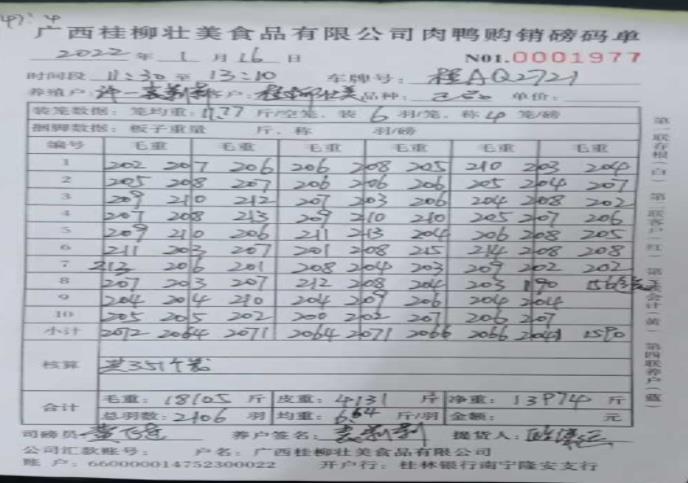 广西桂柳壮美食品有限公司肉鸭购销磅码单
2022 年 1 月 16 日 NO1.0001977
时间段 11:30 至 13:10 车牌号: 桂AQ2721
养殖户: 许一 客户: 桂柳壮美 品种: 单价:
装笼数据: 笼均重: 11.77 斤/空笼、装 6 羽/笼、称 4 笼/磅
捆脚数据: 板子重量 斤、称 羽/磅
编号 毛重 毛重 毛重 毛重 毛重
1 202 207 206 206 208 205 210 203 204
2 205 208 207 206 206 206 205 204 207
3 209 210 212 207 203 206 204 208 202
4 207 208 213 209 210 210 205 207 206
5 209 210 206 211 213 204 206 208 205
6 211 203 207 201 208 215 214 208 208
7 212 206 201 208 204 203 209 202 202
8 207 203 207 212 208 204 203 190 156
9 204 204 210 204 209 206 204 204
10 205 205 202 200 202 207 206 207
小计 2072 2064 2071 2064 2071 2066 2066 2041 1590
核算 共351个笼
合计 毛重: 18105 斤 皮重: 4131 斤 净重: 13974 斤
总羽数: 2106 羽 均重: 6.64 斤/羽 金额: 元
司磅员 养户签名: 提货人:
公司汇款账号: 户名: 广西桂柳壮美食品有限公司
账户: 660000014752300022 开户行: 桂林银行南宁隆安支行
第一联存根(白) 第二联客户(红) 第三联会计(黄) 第四联养户(蓝)